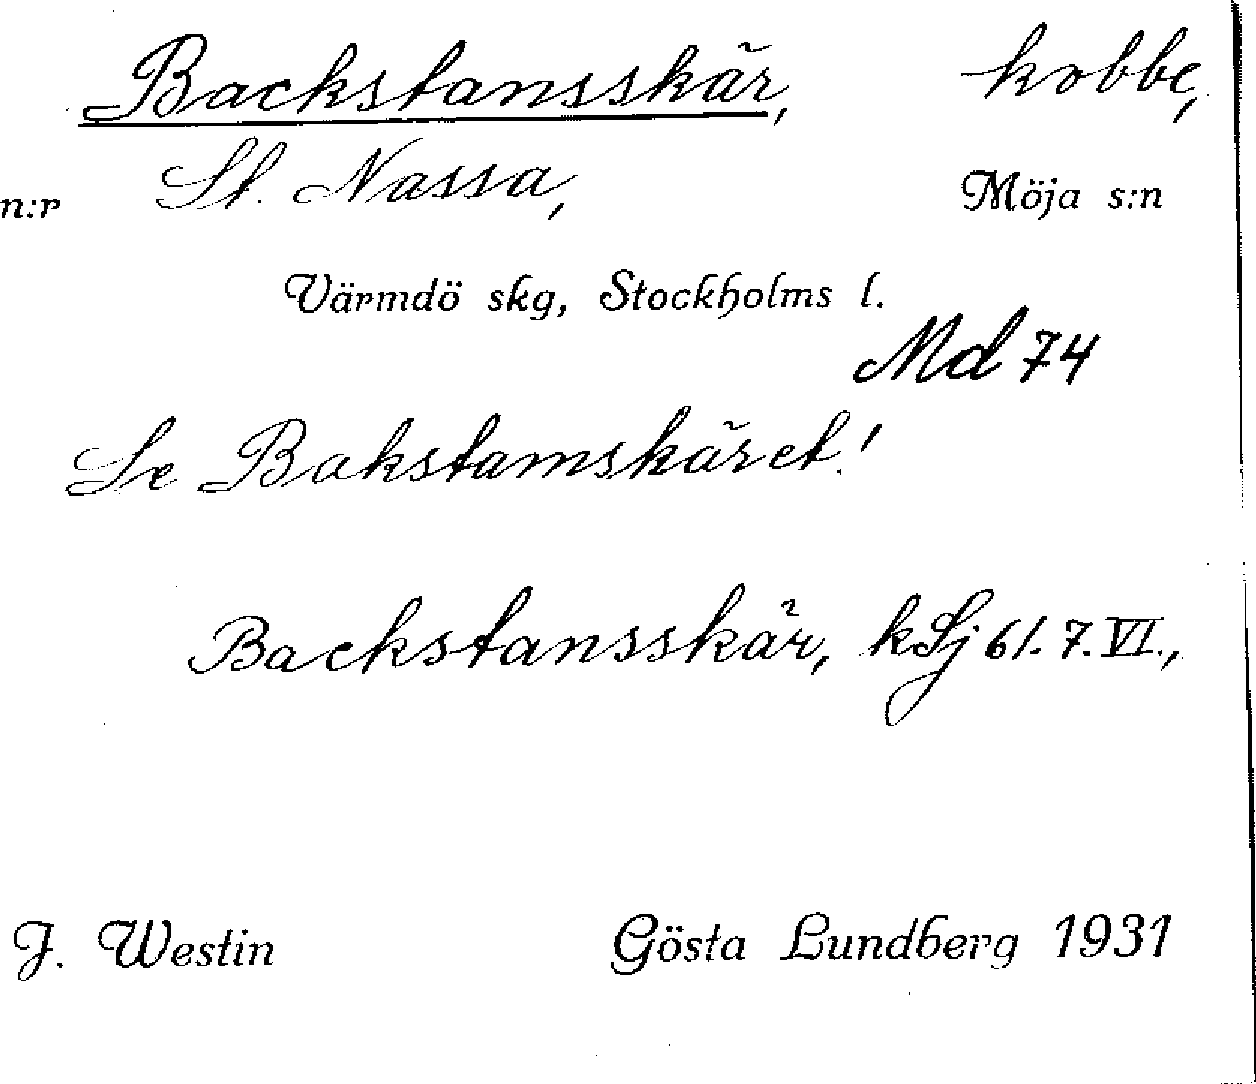 Backstansskär, kobbe,
n:r St. Nassa, Möja s:n
Värmdö skg, Stockholms l.
Md 74
Se Bakstamskäret!
Backstansskär, k Sj 61. 7. VI.,
J. Westin Gösta Lundberg 1931